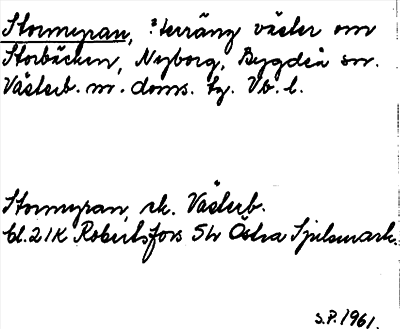 Stormyran, : terräng väster om
Storbäcken, Nyborg, Bygdeå sn.
Västerb. m. doms. tg. Vb. l.
Stormyran, ek. Västerb.
bl. 21K Robertsfors 5h Östra Sjulsmark.
S.P. 1961.